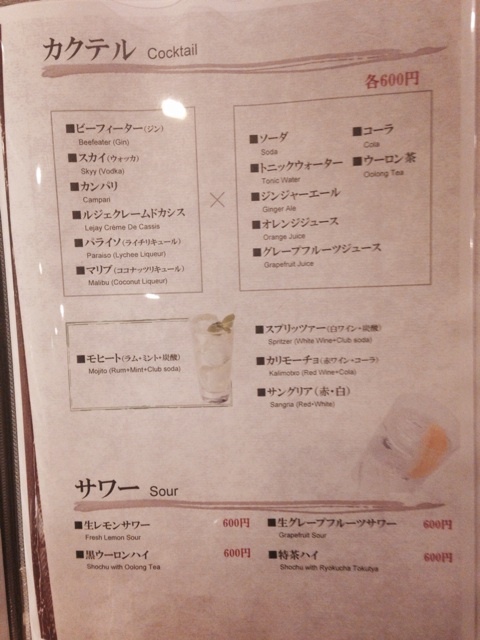 カクテル Cocktail
各600円
■ビーフィーター(ジン)
Beefeater (Gin)
■スカイ(ウォッカ)
Skyy (Vodka)
■カンパリ
Campari
■ルジェクレームドカシス
Lejay Crème De Cassis
■パライソ(ライチリキュール)
Paraiso (Lychee Liqueur)
■マリブ(ココナッツリキュール)
Malibu (Coconut Liqueur)
×
■ソーダ
Soda
■トニックウォーター
Tonic Water
■ジンジャーエール
Ginger Ale
■オレンジジュース
Orange Juice
■グレープフルーツジュース
Grapefruit Juice
■コーラ
Cola
■ウーロン茶
Oolong Tea
■モヒート(ラム+ミント+炭酸)
Mojito (Rum+Mint+Club soda)
■スプリッツァー(白ワイン+炭酸)
Spritzer (White Wine+Club soda)
■カリモーチョ(赤ワイン+コーラ)
Kalimotxo (Red Wine+Cola)
■サングリア(赤・白)
Sangria (Red・White)
サワー Sour
■生レモンサワー 600円
Fresh Lemon Sour
■黒ウーロンハイ 600円
Shochu with Oolong Tea
■生グレープフルーツサワー 600円
Grapefruit Sour
■特茶ハイ 600円
Shochu with Ryokucha Tokutya